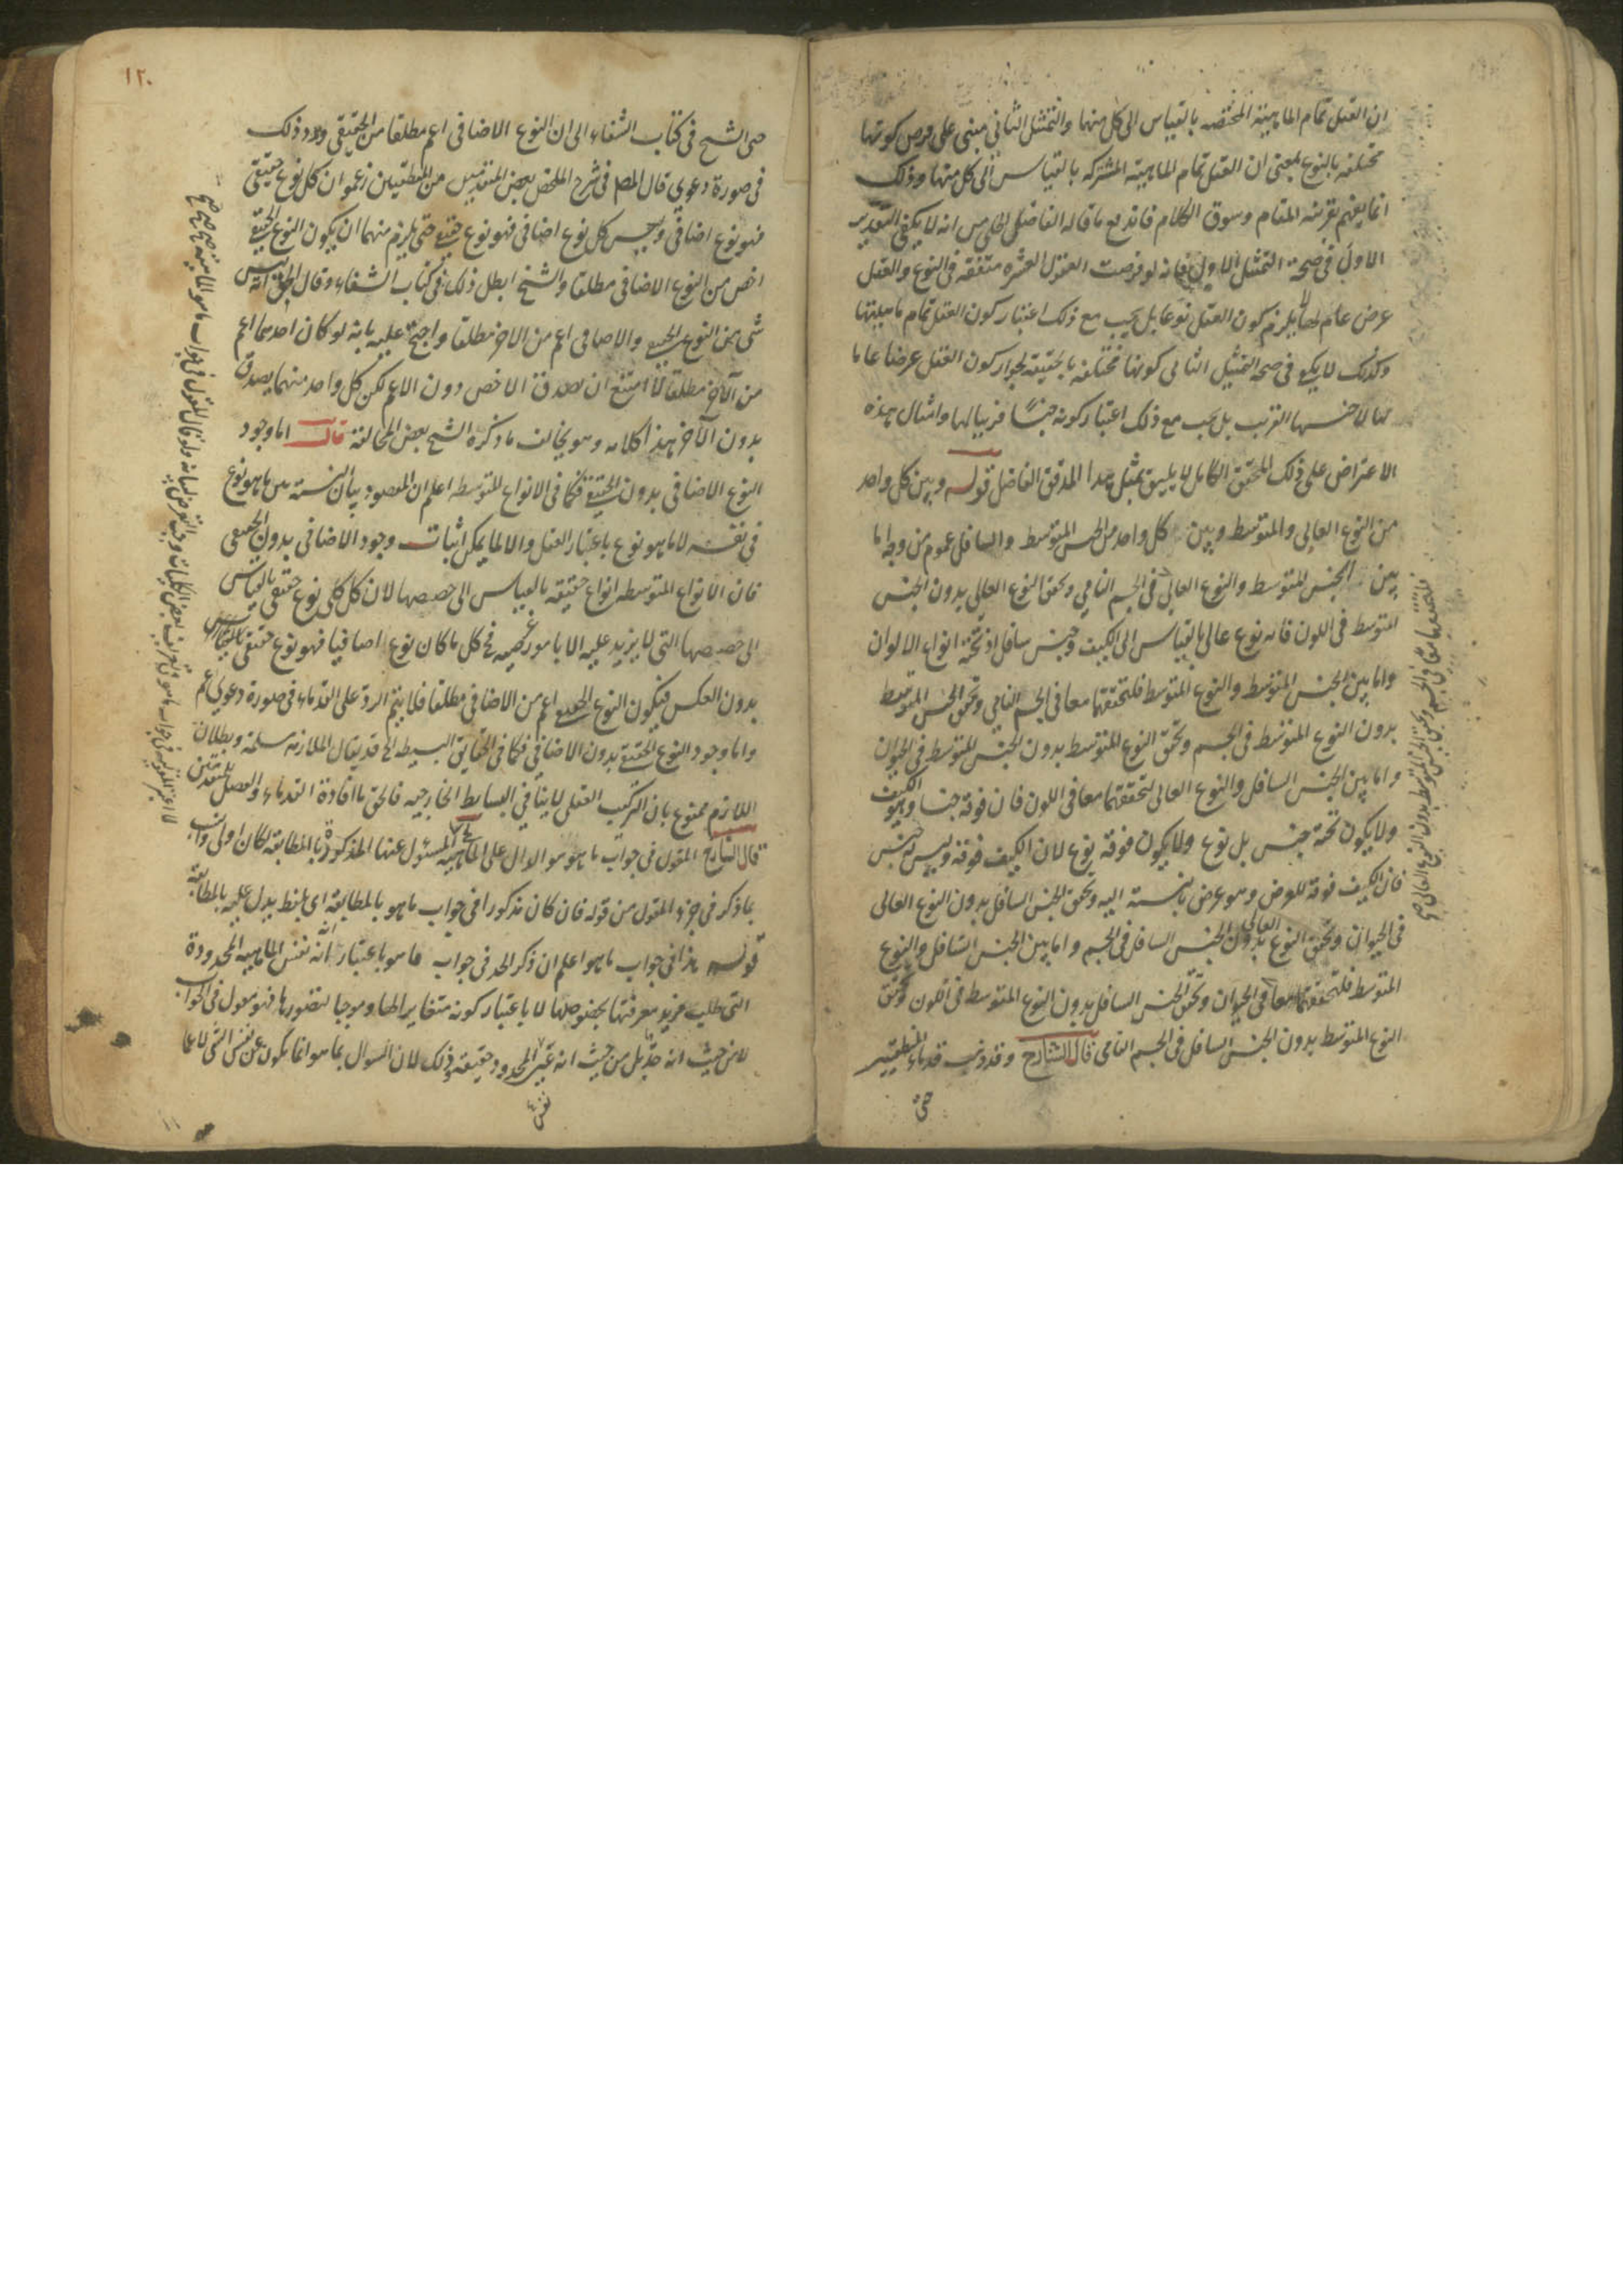 ان العقل تمام الماهية المختصة بالقياس الى كل منها والتمثيل الثاني مبني على فرض كونها
مختلفة بالنوع بمعنى ان العقل تمام الماهية المشتركة بالقياس الى كل منها وذلك
انما يفهم بقرينة المقام وسوق الكلام فاندفع ما قاله الفاضل من انه لا يكفي التقدير
الاول في صحة التمثيل الاول فانه لو فرضت العقول العشرة متفقة في النوع والعقل
عرض عام لها لم يلزم كون العقل نوعا بل يجب مع ذلك اعتبار كون العقل تمام ماهيتها
وكذلك لا يكفي في صحة التمثيل الثاني كونها مختلفة بالحقيقة لجواز كون العقل عرضا عاما
لها لا جنسها القريب بل يجب مع ذلك اعتبار كونه جنسا قريبا لها وامثال هذه
الاعتراض على ذلك المحقق الكامل لا يليق بمثل هذا المدقق الفاضل قوله وبين كل واحد
من النوع العالي والمتوسط وبين كل واحد من الجنس المتوسط والسافل عموم من وجه اما
بين الجنس المتوسط والنوع العالي في الجسم النامي وتحقق النوع العالي بدون الجنس
المتوسط في اللون فانه نوع عالي بالقياس الى الكيف وجنس سافل اذ تحته انواع الالوان
واما بين الجنس المتوسط والنوع المتوسط فلتحققهما معا في الجسم النامي وتحقق الجنس المتوسط
بدون النوع المتوسط في الجسم وتحقق النوع المتوسط بدون الجنس المتوسط في الحيوان
واما بين الجنس السافل والنوع العالي لتحققهما معا في اللون فان فوقه جنسا وهو الكيف
ولا يكون تحته جنس بل نوع ولا يكون فوقه نوع لان الكيف فوقه وليس جنس
فان الكيف فوقه للعرض وهو عرض بالنسبة اليه وتحقق الجنس السافل بدون النوع العالي
في الحيوان وتحقق النوع العالي بدون الجنس السافل في الجسم واما بين الجنس السافل والنوع
المتوسط فلتحققهما معا في الحيوان وتحقق الجنس السافل بدون النوع المتوسط في اللون وتحقق
النوع المتوسط بدون الجنس السافل في الجسم النامي قال الشارح وقد ذهب قدماء المنطقيين
حتى
١٢٠
حتى الشيخ في كتاب الشفاء الى ان النوع الاضافي اعم مطلقا من الحقيقي ورد ذلك
في صورة دعوى قال المص في شرح الملخص بعض المتقدمين من المنطقيين زعموا ان كل نوع حقيقي
فهو نوع اضافي وليس كل نوع اضافي فهو نوع حقيقي حتى يلزم منهما ان يكون النوع الحقيقي
اخص من النوع الاضافي مطلقا والشيخ ابطل ذلك في كتاب الشفاء وقال الحق انه ليس
شئ من النوع الحقيقي والاضافي اعم من الاخر مطلقا واحتج عليه بانه لو كان احدهما اعم
من الآخر مطلقا لامتنع ان يصدق الاخص دون الاعم لكن كل واحد منهما يصدق
بدون الآخر هذا كلامه وهو يخالف ما ذكره الشيخ بعض المخالفة قال اما وجود
النوع الاضافي بدون الحقيقي فكما في الانواع المتوسطة اعلم ان المقصود بيان النسبة بين ما هو نوع
في نفسه لا ما هو نوع باعتبار العقل والا لما يمكن اثبات وجود الاضافي بدون الحقيقي
فان الانواع المتوسطة انواع حقيقة بالقياس الى حصصها لان كل كلي نوع حقيقي بالقياس
الى حصصها التي لا يزيد عليه الا بامور عرضية فح كل ما كان نوع اضافيا فهو نوع حقيقي
بدون العكس فيكون النوع الحقيقي اعم من الاضافي مطلقا فلا يتم الرد على القدماء في صورة دعوى اعم
واما وجود النوع الحقيقي بدون الاضافي فكما في الحقايق البسيطة الخ قد يقال الملازمة مسلمة وبطلان
اللازم ممنوع بان التركيب العقلي لا ينافي البسايط الخارجية فالحق ما افاده القدماء
قال الشارح المقول في جواب ما هو هو الدال على الماهية المسئول عنها المذكورة بالمطابقة لكان اولى
ما ذكر في جزء المقول من قوله فان كان مذكورا في جواب ما هو بالمطابقة اي بلفظ يدل عليه بالمطابقة
قوله هذا في جواب ما هو اعلم ان ذكر الحد في جواب ما هو باعتبار انه نفس الماهية المحدودة
التي طلب مزيد معرفتها بخصوصها لا باعتبار كونه متغايرا لها وموجبا لتصورها فهو مقول في الجواب
لا من حيث انه حد بل من حيث انه عين المحدود حقيقة وذلك لان السؤال بما هو انما يكون عن نفس الشئ لا عما